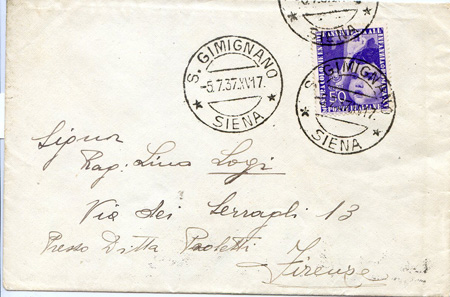 S. GIMIGNANO
-5.7.37.XV 17.
SIENA
SIENA
S. GIMIGNANO
SIENA
50
Signor
Rag. Lino Logi
Via dei Serragli 13
Presso Ditta Paoletti
Firenze